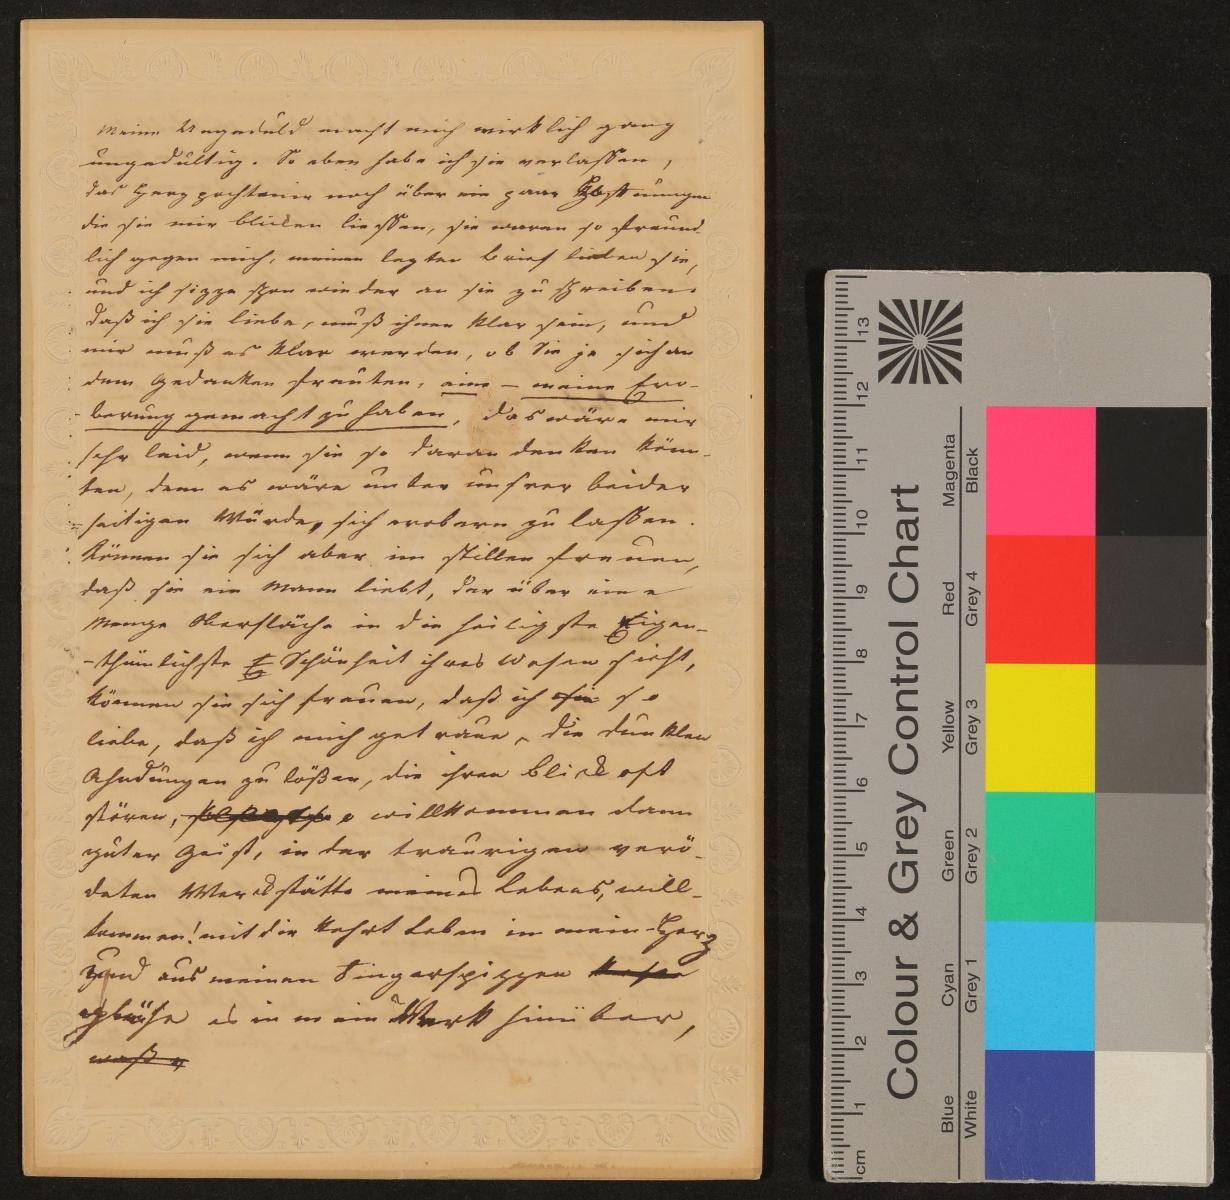 Meine Ungeduld macht mich wirklich ganz
ungedultig. So eben habe ich sie verlassen,
das Herz pochte mir noch über ein paar
die sie mir blicken liessen, sie waren so freund
lich gegen mich, meinen lezten Brief sie,
und ich sizze schon wieder an sie zu schreiben.
daß ich sie liebe, muß ihnen klar sein, und
mir muß es klar werden, ob Sie je sich an
dem Gedanken freuten, eine – meine Ero-
berung gemacht zu haben, das wäre mir
sehr leid, wenn sie so daran denken könn-
ten, denn es wäre unter unsrer beider
seitigen Würde, sich erobern zu lassen.
können sie sich aber im stillen freuen,
daß sie ein Mann liebt, der über eine
Menge Oberfläche in die heiligste Eigen-
-thümlichste Schönheit ihres Wesen sieht,
können sie sich freuen, daß ich sie so
liebe, daß ich mich getraue, die dunklen
Ahndungen zu lößen, die ihren Blick oft
stören, o willkommen dann
guter Geist, in der traurigen verö-
deten Werckstätte meines Lebens, will-
kommen! mit dir kehrt Leben in mein Herz
und aus meinen Fingerspizzen
es in mein Werk hinüber,
waß
Colour & Grey Control Chart
Blue Cyan Green Yellow Red Magenta
White Grey 1 Grey 2 Grey 3 Grey 4 Black
cm 1 2 3 4 5 6 7 8 9 10 11 12 13